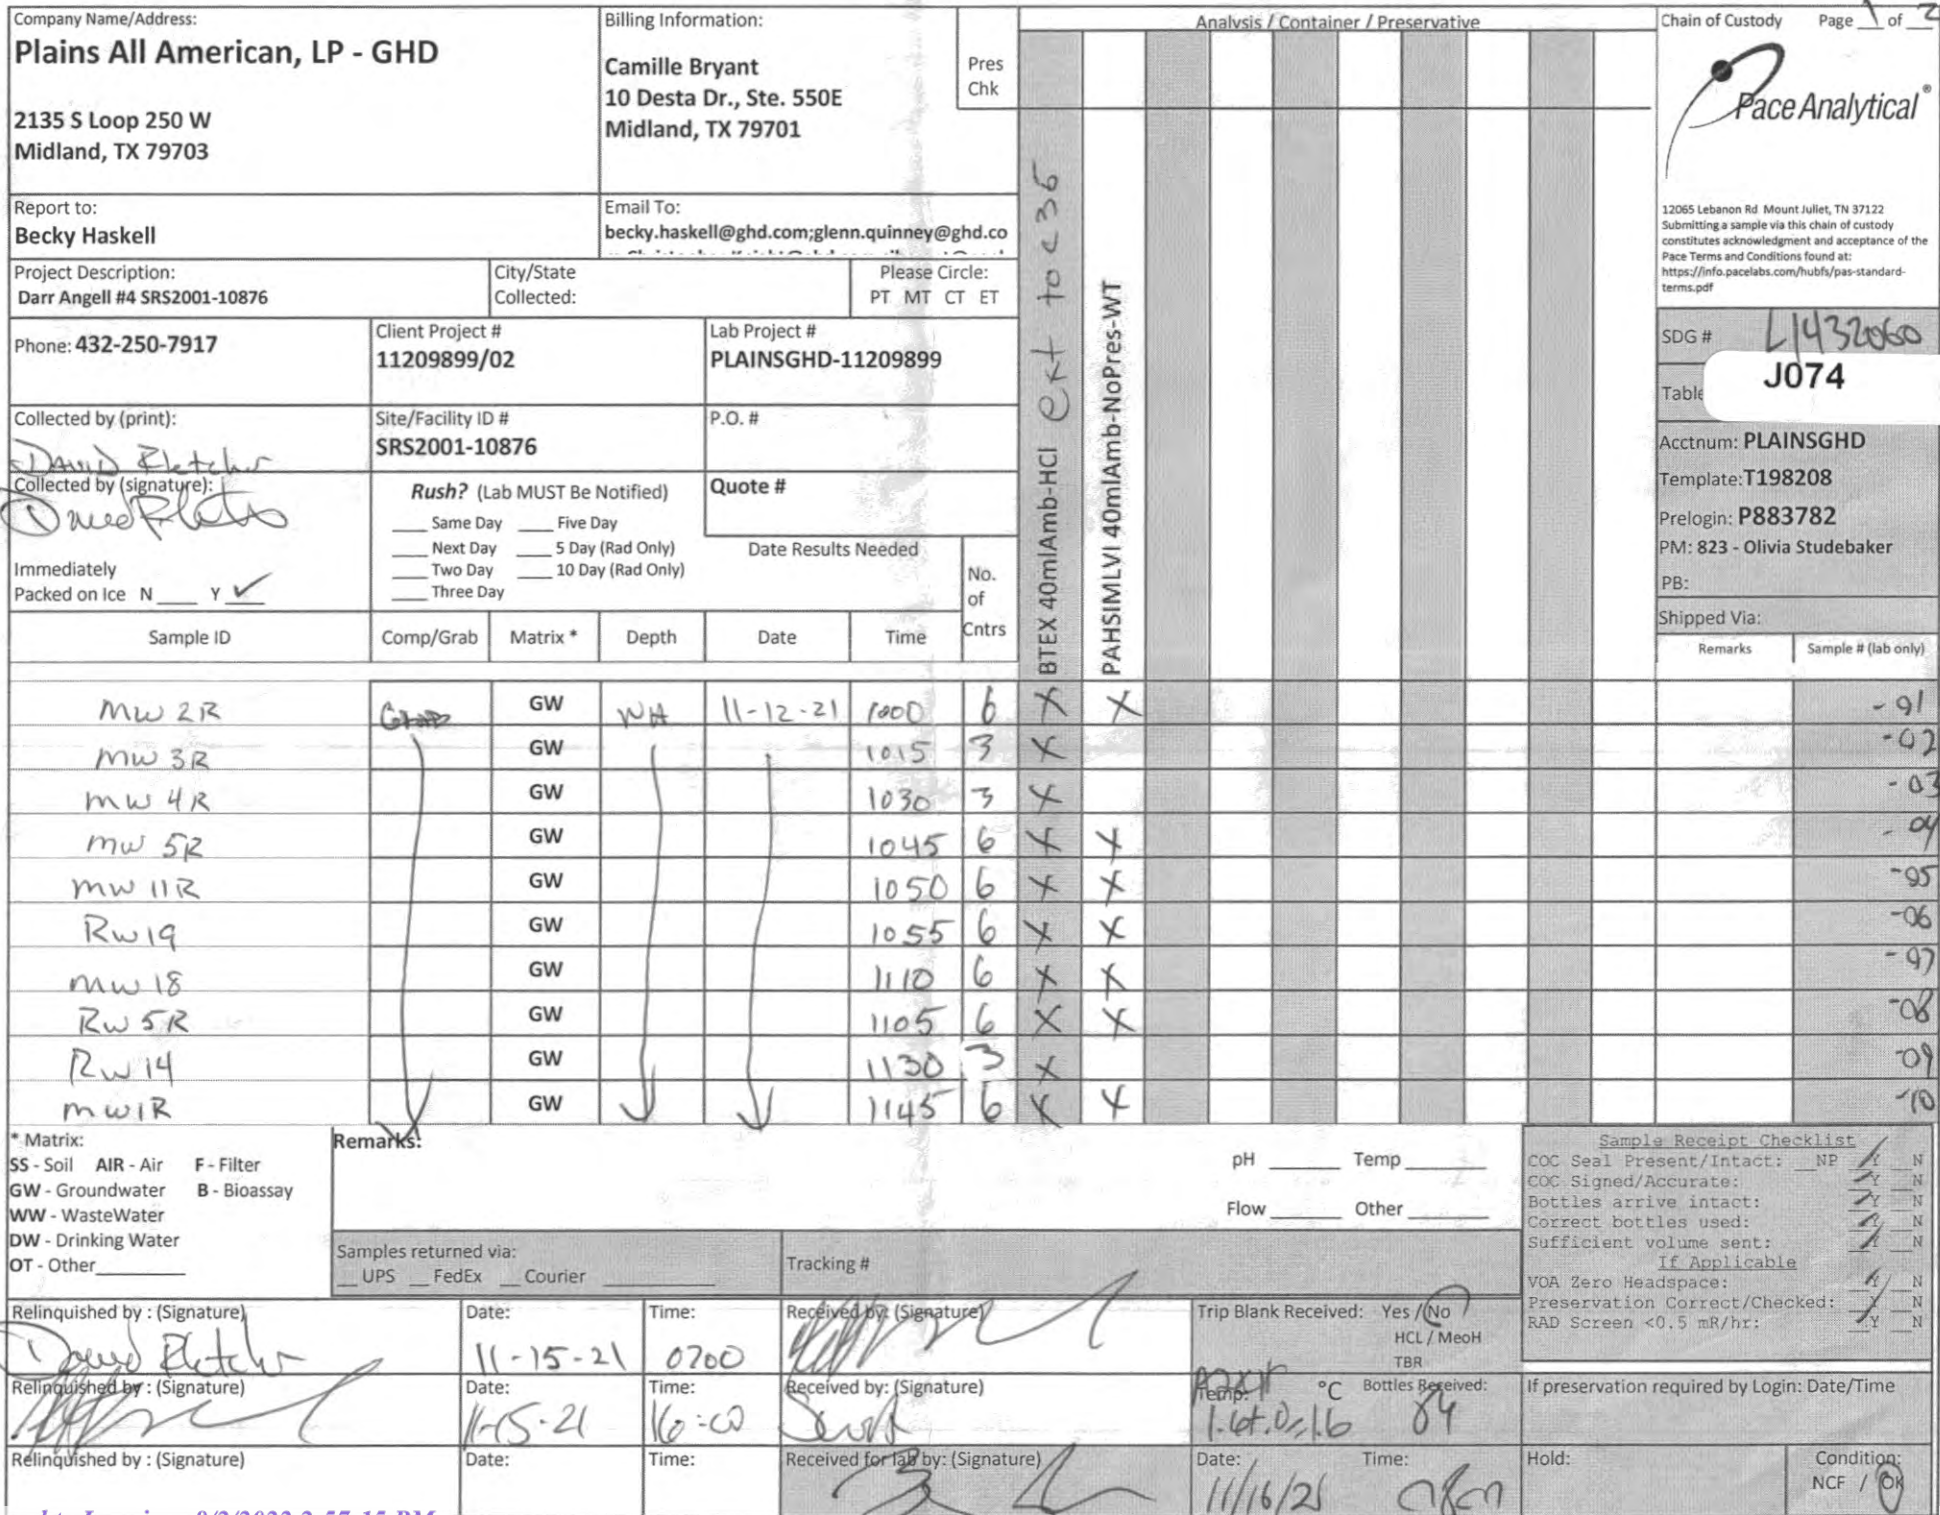 Company Name/Address:
Plains All American, LP - GHD
2135 S Loop 250 W
Midland, TX 79703
Billing Information:
Camille Bryant
10 Desta Dr., Ste. 550E
Midland, TX 79701
Pres
Chk
Analysis / Container / Preservative
Chain of Custody Page 1 of 2
Pace Analytical®
12065 Lebanon Rd Mount Juliet, TN 37122
Submitting a sample via this chain of custody
constitutes acknowledgment and acceptance of the
Pace Terms and Conditions found at:
https://info.pacelabs.com/hubfs/pas-standard-
terms.pdf
Report to:
Becky Haskell
Email To:
becky.haskell@ghd.com;glenn.quinney@ghd.co
Project Description:
Darr Angell #4 SRS2001-10876
City/State
Collected:
Please Circle:
PT MT CT ET
Phone: 432-250-7917
Client Project #
11209899/02
Lab Project #
PLAINSGHD-11209899
SDG # L1432060
Table
J074
Collected by (print):
David Fletcher
Site/Facility ID #
SRS2001-10876
P.O. #
Acctnum: PLAINSGHD
Template:T198208
Prelogin: P883782
PM: 823 - Olivia Studebaker
PB:
Shipped Via:
Collected by (signature):
David Fletcher
Rush? (Lab MUST Be Notified)
___ Same Day ___ Five Day
___ Next Day ___ 5 Day (Rad Only)
___ Two Day ___ 10 Day (Rad Only)
___ Three Day
Quote #
Date Results Needed
Immediately
Packed on Ice N ___ Y ✓
No.
of
Cntrs
BTEX 40mlAmb-HCl ext to c36
PAHSIMLVI 40mlAmb-NoPres-WT
Sample ID Comp/Grab Matrix * Depth Date Time Remarks Sample # (lab only)
MW 2R Grab GW NA 11-12-21 1000 6 X X -01
MW 3R GW 1015 3 X -02
MW 4R GW 1030 3 X -03
MW 5R GW 1045 6 X X -04
MW 11R GW 1050 6 X X -05
RW 19 GW 1055 6 X X -06
MW 18 GW 1110 6 X X -07
RW 5R GW 1105 6 X X -08
RW 14 GW 1130 3 X -09
MW1R GW 1145 6 X X -10
* Matrix:
SS - Soil AIR - Air F - Filter
GW - Groundwater B - Bioassay
WW - WasteWater
DW - Drinking Water
OT - Other
Remarks:
pH ___ Temp ___
Flow ___ Other ___
Samples returned via:
__ UPS __ FedEx __ Courier
Tracking #
Sample Receipt Checklist
COC Seal Present/Intact: __NP Y __N
COC Signed/Accurate: Y __N
Bottles arrive intact: Y __N
Correct bottles used: Y __N
Sufficient volume sent: Y __N
If Applicable
VOA Zero Headspace: Y __N
Preservation Correct/Checked: Y __N
RAD Screen <0.5 mR/hr: Y __N
Relinquished by : (Signature)
David Fletcher
Date:
11-15-21
Time:
0700
Received by: (Signature)
Trip Blank Received: Yes / No
HCL / MeoH
TBR
Relinquished by : (Signature)
Date:
11-15-21
Time:
16:00
Received by: (Signature)
Temp: °C
1.6+.0=1.6
Bottles Received:
84
If preservation required by Login: Date/Time
Relinquished by : (Signature)
Date:
Time:
Received for lab by: (Signature)
Date:
11/16/21
Time:
Hold:
Condition:
NCF / OK